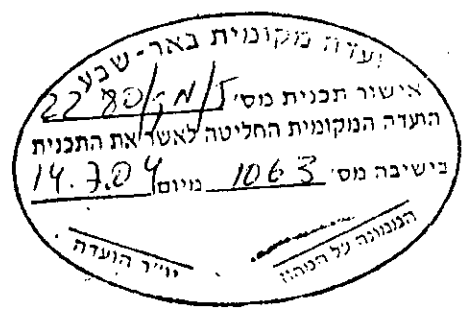 ועדה מקומית באר-שבע
אישור תכנית מס' 5/מק/2280
הועדה המקומית החליטה לאשר את התכנית
בישיבה מס' 1063 מיום 14.7.04
הממונה על המחוז
יו"ר הועדה